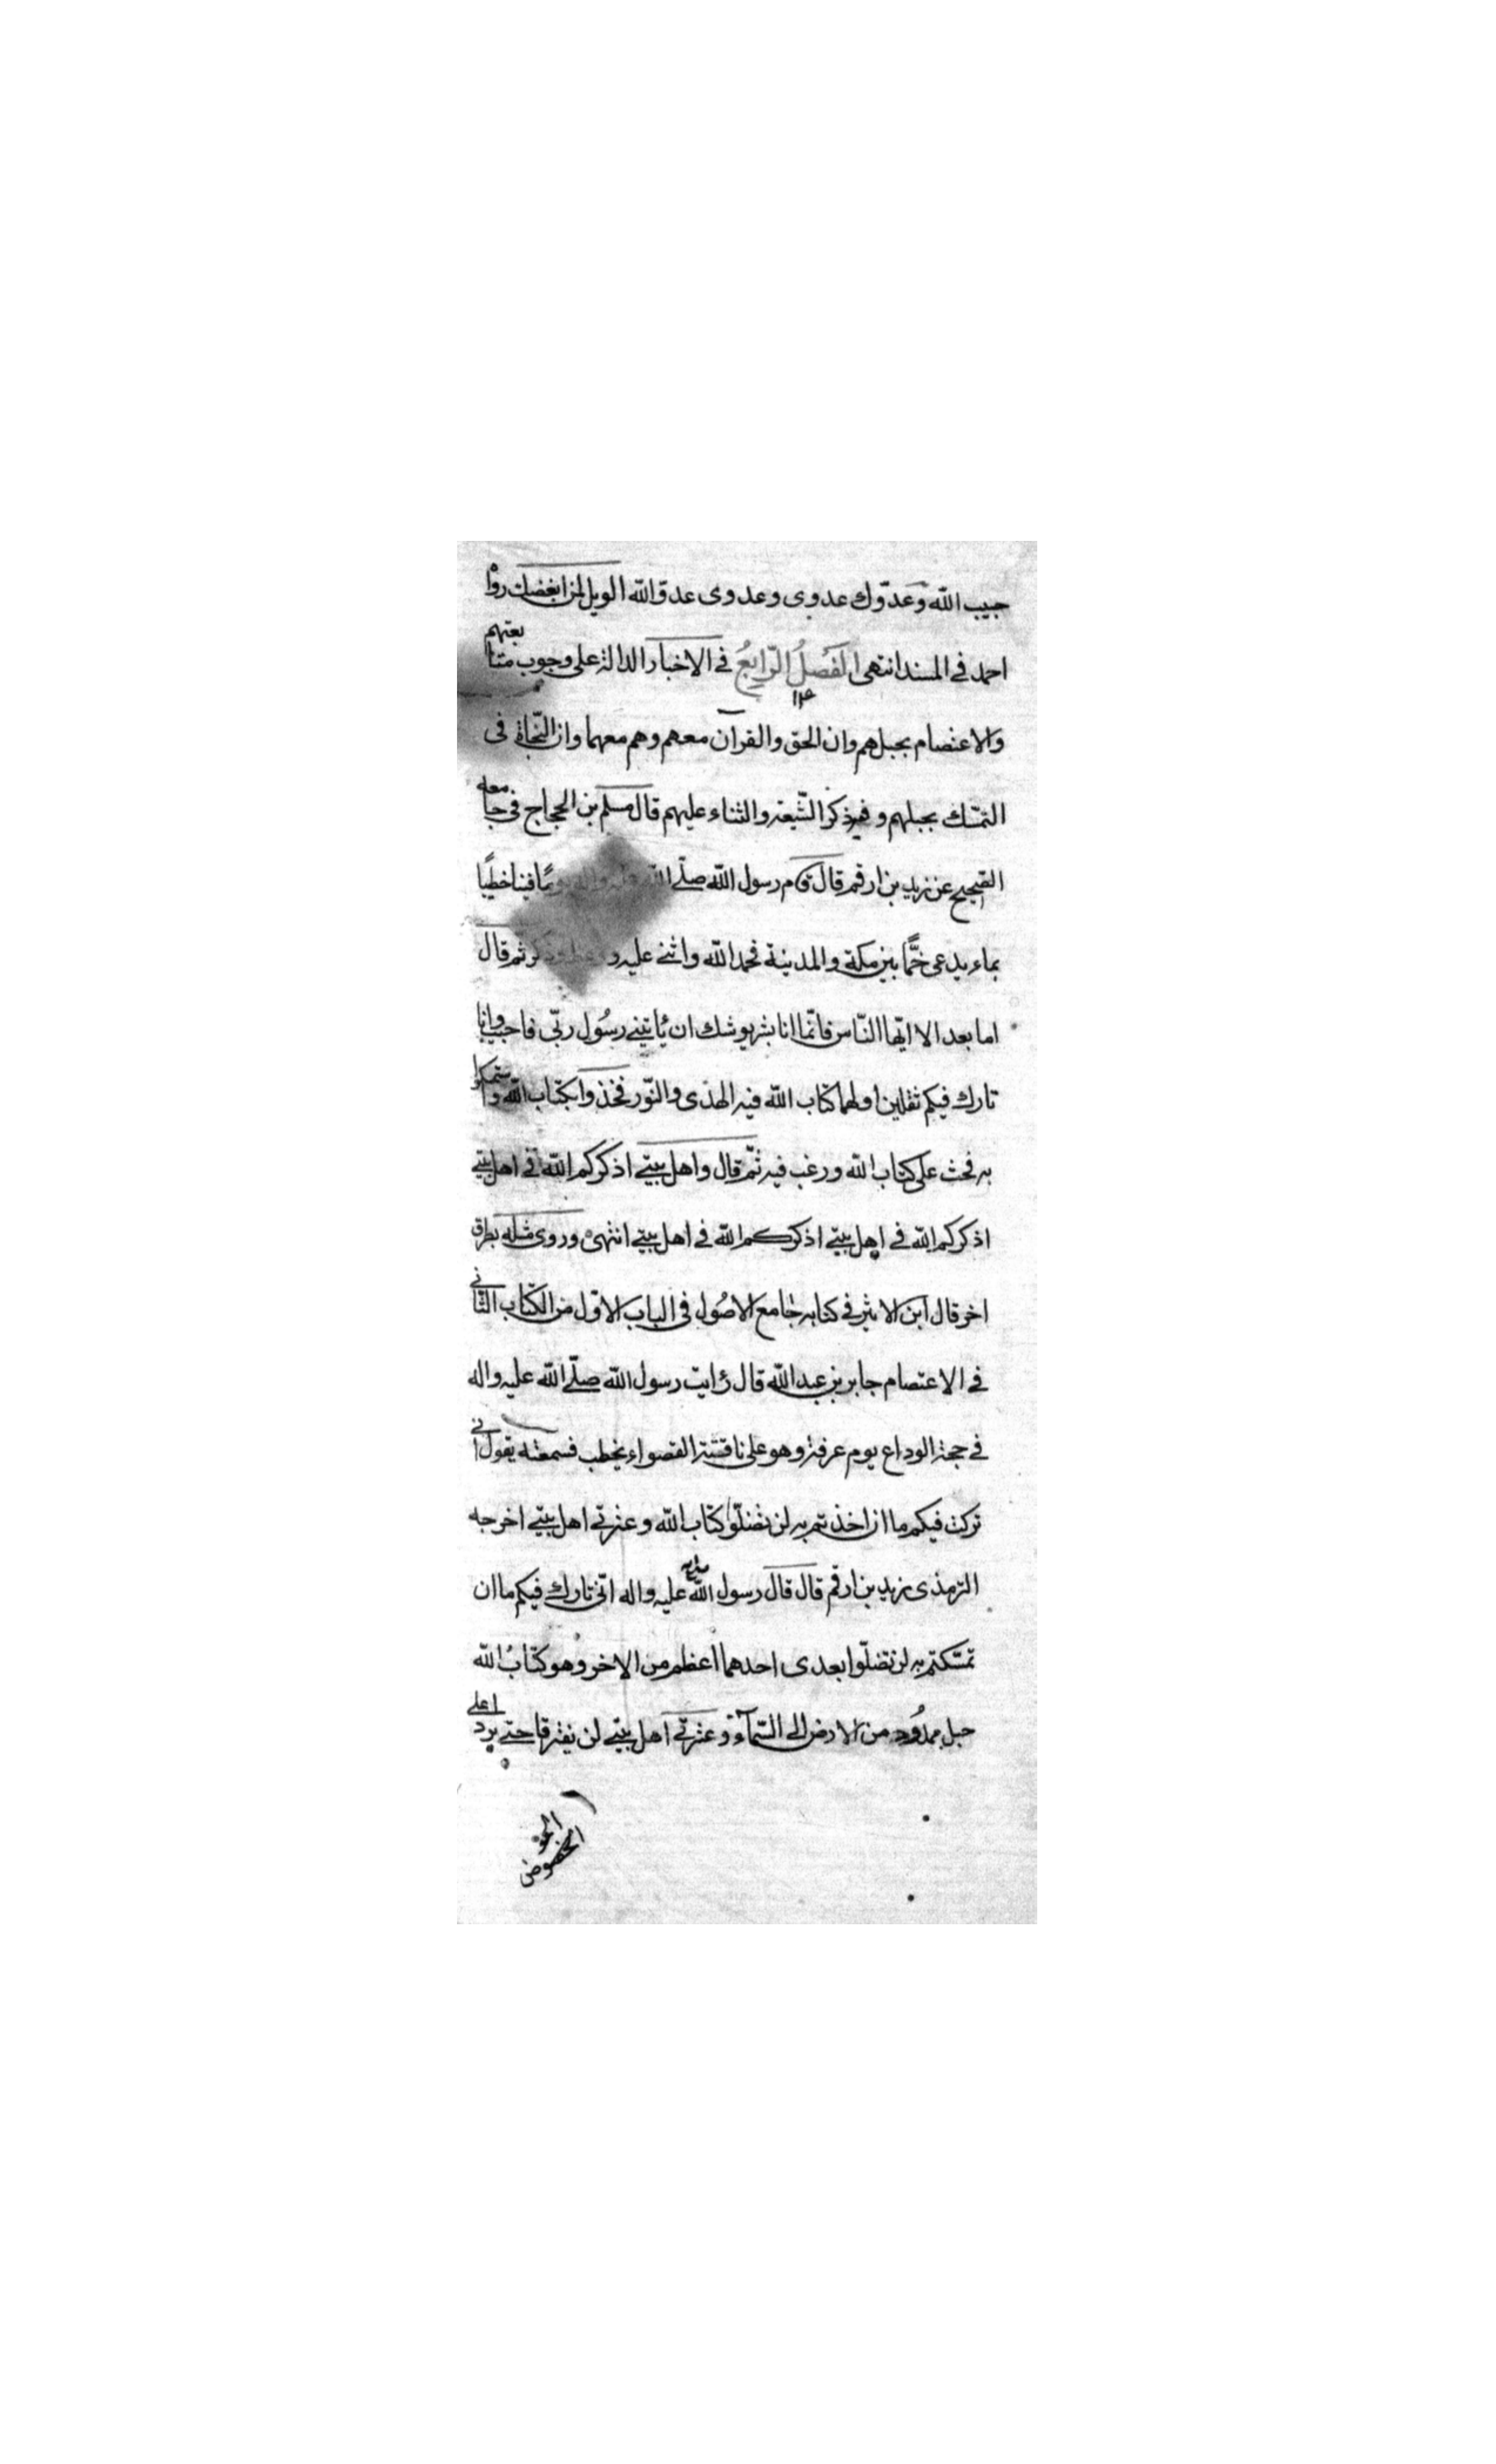 حبيب الله وعدوّك عدوى وعدوى عدوّ الله الويل لمن ابغضك رواه
احمد فى المسند انتهى الفَصلُ الرّابعُ فى الاخبار الدالة على وجوب متابعتهم
والاعتصام بحبلهم وان الحق والقرآن معهم وهم معهما وان النّجاة فى
التمسّك بحبلهم و فيه ذكر الشّيعة والثناء عليهم قال مسلم بن الحجاج فى جامعه
الصّحيح عن زيد بن ارقم قال قام رسول الله صلّى الله عليه واله يومًا فينا خطيبًا
بماء يدعى خمًّا بين مكة والمدينة فحمد الله واثنى عليه ووعظ وذكر ثم قال
اما بعد الا ايّها النّاس فانّما انا بشر يوشك ان يأتينى رسُول ربّى فاجيب وانا
تارك فيكم ثقلين اولهما كتاب الله فيه الهدى والنّور فخذوا بكتاب الله واستمسكوا
به فحث على كتاب الله ورغب فيه ثمّ قال واهل بيتى اذكركم الله فى اهل بيتى
اذكركم الله فى اهل بيتى اذكركم الله فى اهل بيتى انتهى وروى مثله بطرق
اخر قال ابن الاثير فى كتابه جامع الاصُول فى الباب الاوّل من الكتاب الثّانى
فى الاعتصام جابر بن عبد الله قال رأيت رسول الله صلّى الله عليه واله
فى حجة الوداع يوم عرفة وهو على ناقته القصواء يخطب فسمعته يقول انى
تركت فيكم ما ان اخذتم به لن تضلّوا كتاب الله وعترتى اهل بيتى اخرجه
الترمذى زيد بن ارقم قال قال رسول الله صلى الله عليه واله انّى تارك فيكم ما ان
تمسّكتم به لن تضلّوا بعدى احدهما اعظم من الاخر وهو كتابُ الله
حبل ممدُود من الارض الى السّمآء وعترتى اهل بيتى لن يفترقا حتى يردا على
الحوض